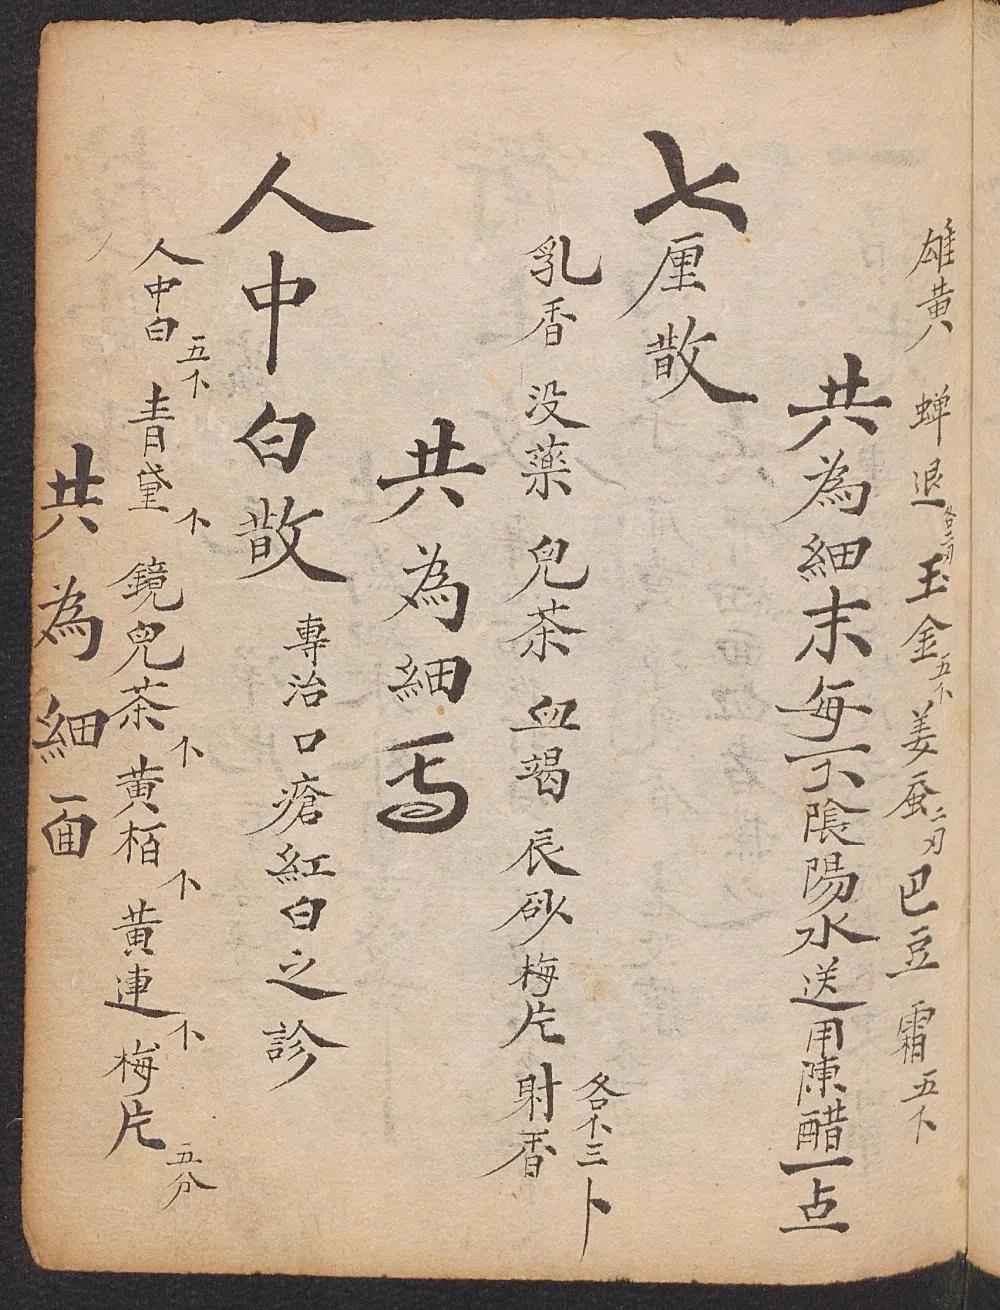 雄黄 蝉退各二刃 玉金五卜 姜蚕二刃 巴豆霜五卜
共為細末每下陰陽水送用陳醋一点
七厘散
乳香 没藥 児茶 血竭 辰砂 梅片 射香各卜三卜
共為細
人中白散 專治口瘡紅白之診
人中白五卜 青黛卜 鏡児茶卜 黄栢卜 黄連卜 梅片五分
共為細面